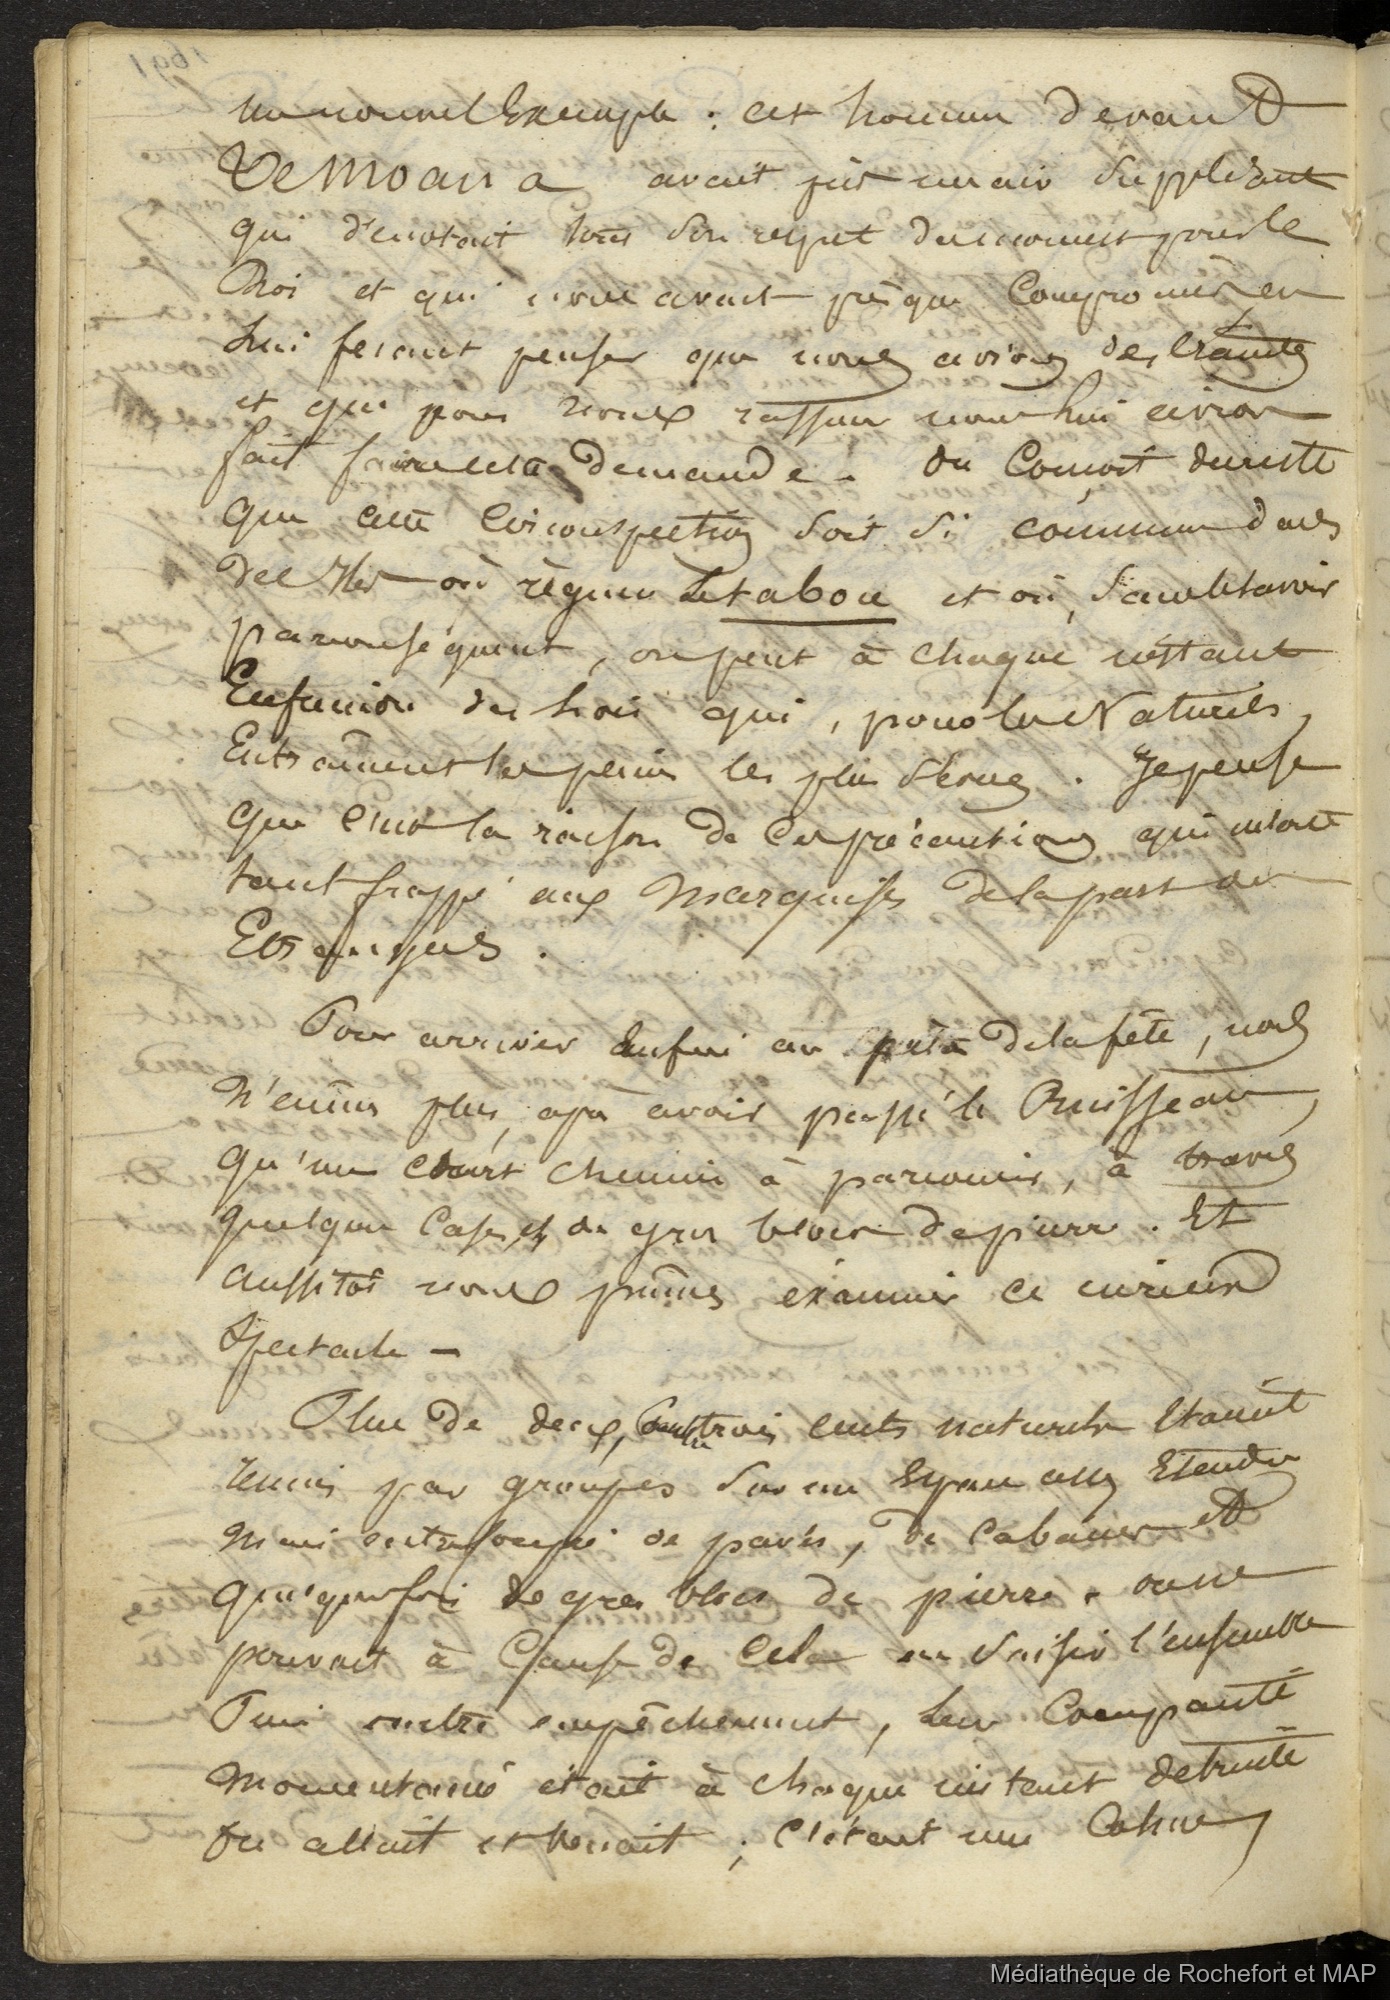 un nouvel Exemple : cet homme devant
TeMoana avait pris un air suppliant
qui dénotait tout son respect du moment pour le
Roi et qui nous avait presque compromis, en
lui fesant penser que nous avions des craintes
et que pour nous rassurer nous lui avions
fait faire cette demande. On Conçoit du reste
que cette Circonspection soit si commune dans
des Iles où règne le tabou et où, sans le savoir
par conséquent, on peut à chaque instant
Enfreindre des lois qui, pour les Naturels,
Entrainent les peines les plus sévères. Je pense
que c'est la raison de ces précautions qui m'ont
tant frappé aux Marquises de la part des
Etrangers.
Pour arriver Enfin au de la fête, nous
n'eumes plus, après avoir passé le Ruisseau,
qu'un court chemin à parcourir, à travers
quelques Cases et de gros blocs de pierre. Et
aussitôt nous pûmes examiner ce curieux
Spectacle —
Plus de deux, trois cents naturels Etaient
réunis par groupes sur un Espace assez Etendu
mais entrecoupé de pavés, de cabanes et
quelquefois de gros blocs de pierre. on ne
pouvait à Cause de Cela en saisir l'ensemble
Puis autre empêchement, leur Compacité
momentanée était à chaque instant detruite
On allait et venait ; c'était une Cohue,
Médiathèque de Rochefort et MAP